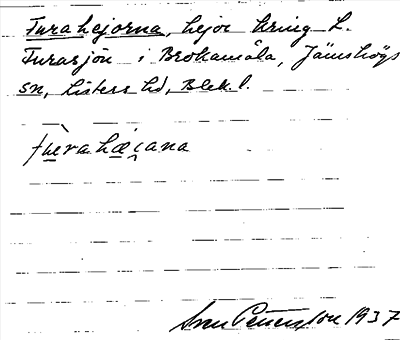 Furahejorna, hejor kring L.
Furasjön i Brokamåla, Jämshögs
sn, Listers hd, Blek. l.
fùerahæjana
Sven Petersson 1937